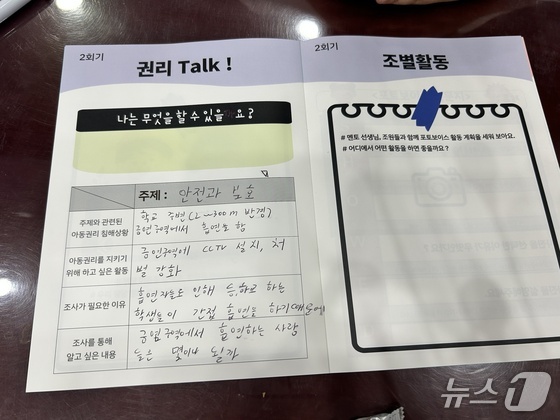 2회기
권리 Talk !
나는 무엇을 할 수 있을 요?
주제: 안전과 보호
주제와 관련된
아동권리 침해상황
학교 주변(2~300m 반경?)
금연구역에서 흡연을 함
아동권리를 지키기
위해 하고 싶은 활동
금연구역에 CCTV 설치, 처
벌 강화
조사가 필요한 이유
흡연자들로 인해 등,하교 하는
학생들이 간접 흡연을 하기 때문에
조사를 통해
알고 싶은 내용
금연구역에서 흡연하는 사람
들은 몇이나 될까
2회기
조별활동
# 멘토 선생님, 조원들과 함께 포토보이스 활동 계획을 세워 보아요.
# 어디에서 어떤 활동을 하면 좋을까요?
뉴스1